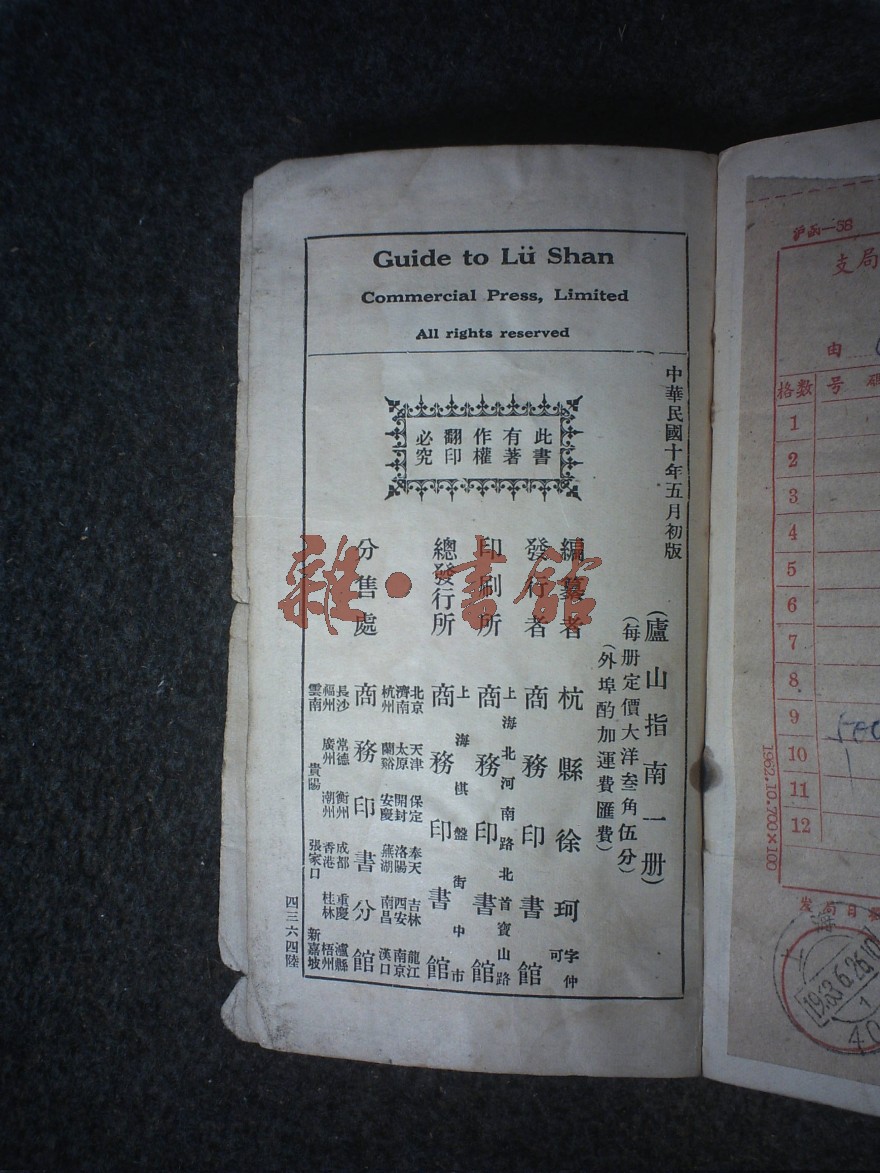 Guide to Lü Shan
Commercial Press, Limited
All rights reserved
中華民國十年五月初版
此書
有著
作權
翻印
必究
(廬山指南一册)
(每册定價大洋叁角伍分)
(外埠酌加運費匯費)
編纂者 杭縣徐珂字仲可
發行者 商務印書館
上海北河南路北首寶山路
印刷所 商務印書館
上海棋盤街中市
總發行所 商務印書館
北京 天津 保定 奉天 吉林 龍江
濟南 太原 開封 洛陽 西安 南京
杭州 蘭谿 安慶 蕪湖 南昌 漢口
分售處 商務印書分館
長沙 常德 衡州 成都 重慶 瀘縣
福州 廣州 潮州 香港 桂林 梧州
雲南 貴陽 張家口 新嘉坡
四三六四陸
雜·書館
沪函—58
支局
由
格数 号 碼
1
2
3
4
5
6
7
8
9
10
11
12
1962.10.700×100
发局日
上海
1963.6.26.10
1
40